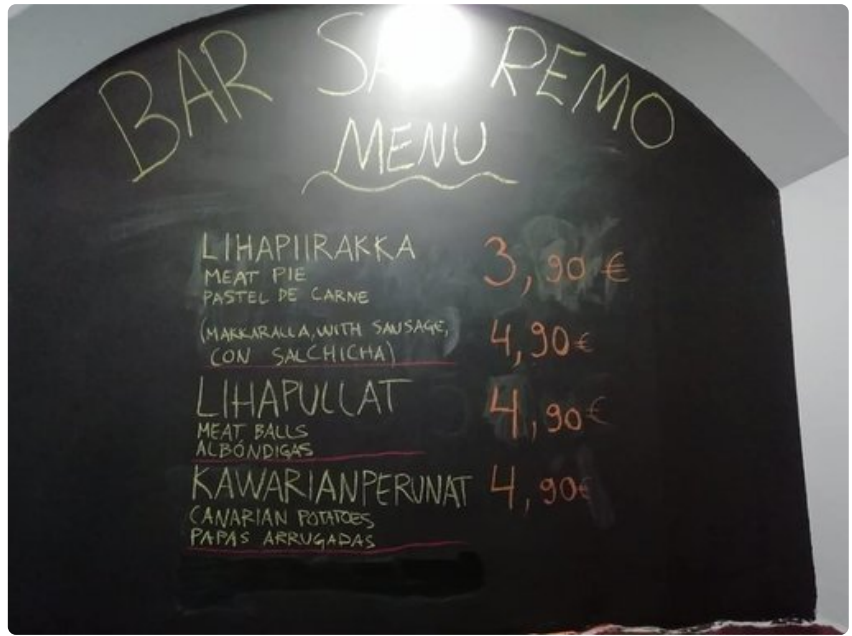 BAR REMO
MENU
LIHAPIIRAKKA 3,90 €
MEAT PIE
PASTEL DE CARNE
(MAKKARALLA, WITH SAUSAGE, 4,90€
CON SALCHICHA)
LIHAPULLAT 4,90€
MEAT BALLS
ALBÓNDIGAS
KAWARIANPERUNAT 4,90€
CANARIAN POTATOES
PAPAS ARRUGADAS